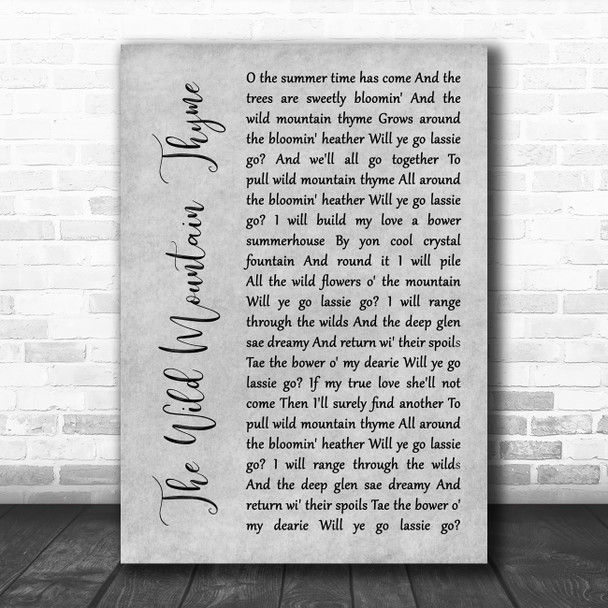 The Wild Mountain Thyme
O the summer time has come And the
trees are sweetly bloomin' And the
wild mountain thyme Grows around
the bloomin' heather Will ye go lassie
go? And we'll all go together To
pull wild mountain thyme All around
the bloomin' heather Will ye go lassie
go? I will build my love a bower
summerhouse By yon cool crystal
fountain And round it I will pile
All the wild flowers o' the mountain
Will ye go lassie go? I will range
through the wilds And the deep glen
sae dreamy And return wi' their spoils
Tae the bower o' my dearie Will ye go
lassie go? If my true love she'll not
come Then I'll surely find another To
pull wild mountain thyme All around
the bloomin' heather Will ye go lassie
go? I will range through the wilds
And the deep glen sae dreamy And
return wi' their spoils Tae the bower o'
my dearie Will ye go lassie go?